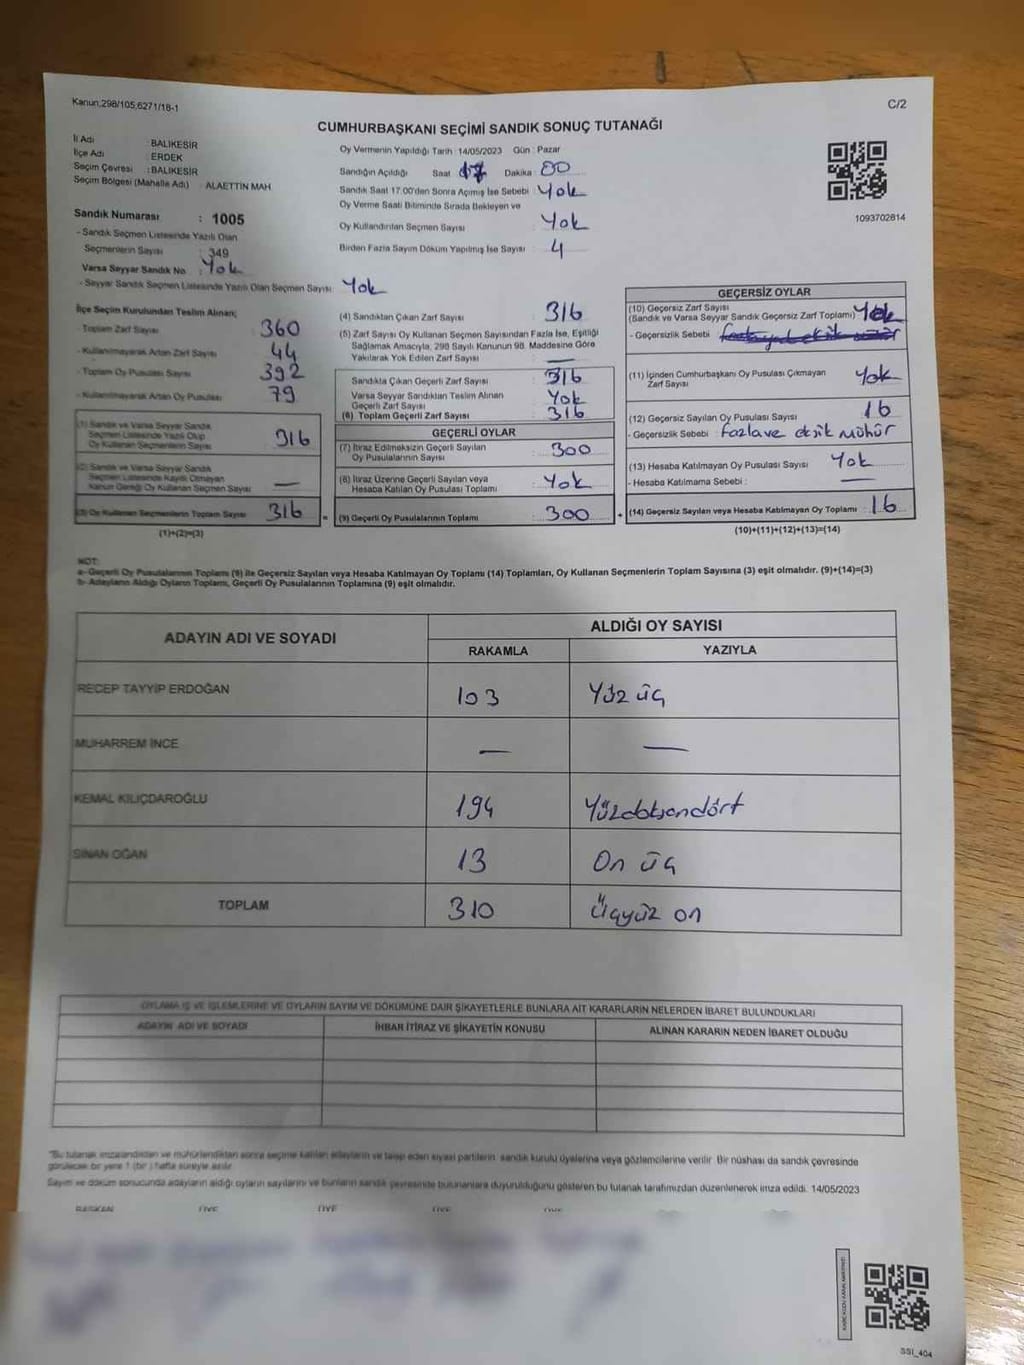 Kanun;298/105,6271/18-1
C/2
CUMHURBAŞKANI SEÇİMİ SANDIK SONUÇ TUTANAĞI
İl Adı : BALIKESİR
İlçe Adı : ERDEK
Seçim Çevresi : BALIKESİR
Seçim Bölgesi (Mahalle Adı) : ALAETTİN MAH
Oy Vermenin Yapıldığı Tarih : 14/05/2023 Gün : Pazar
Sandığın Açıldığı Saat 17 Dakika : 00
Sandık Saat 17:00'den Sonra Açılmış İse Sebebi : Yok
Oy Verme Saati Bitiminde Sırada Bekleyen ve
Oy Kullandırılan Seçmen Sayısı Yok
Birden Fazla Sayım Döküm Yapılmış İse Sayısı : 4
1093702814
Sandık Numarası : 1005
- Sandık Seçmen Listesinde Yazılı Olan
Seçmenlerin Sayısı : 349
Varsa Seyyar Sandık No : Yok
- Seyyar Sandık Seçmen Listesinde Yazılı Olan Seçmen Sayısı : Yok
İlçe Seçim Kurulundan Teslim Alınan;
- Toplam Zarf Sayısı : 360
- Kullanılmayarak Artan Zarf Sayısı : 44
- Toplam Oy Pusulası Sayısı : 392
- Kullanılmayarak Artan Oy Pusulası : 79
(1) Sandık ve Varsa Seyyar Sandık
Seçmen Listesinde Yazılı Olup
Oy Kullanan Seçmenlerin Sayısı : 316
(2) Sandık ve Varsa Seyyar Sandık
Seçmen Listesinde Kayıtlı Olmayan
Kanun Gereği Oy Kullanan Seçmen Sayısı : —
(3) Oy Kullanan Seçmenlerin Toplam Sayısı : 316
(1)+(2)=(3)
(4) Sandıktan Çıkan Zarf Sayısı : 316
(5) Zarf Sayısı Oy Kullanan Seçmen Sayısından Fazla İse, Eşitliği
Sağlamak Amacıyla, 298 Sayılı Kanunun 98. Maddesine Göre
Yakılarak Yok Edilen Zarf Sayısı : —
Sandıkta Çıkan Geçerli Zarf Sayısı : 316
Varsa Seyyar Sandıktan Teslim Alınan
Geçerli Zarf Sayısı : Yok
(6) Toplam Geçerli Zarf Sayısı : 316
GEÇERLİ OYLAR
(7) İtiraz Edilmeksizin Geçerli Sayılan
Oy Pusulalarının Sayısı : 300
(8) İtiraz Üzerine Geçerli Sayılan veya
Hesaba Katılan Oy Pusulası Toplamı : Yok
= (9) Geçerli Oy Pusulalarının Toplamı : 300
GEÇERSİZ OYLAR
(10) Geçersiz Zarf Sayısı
(Sandık ve Varsa Seyyar Sandık Geçersiz Zarf Toplamı) Yok
- Geçersizlik Sebebi :
(11) İçinden Cumhurbaşkanı Oy Pusulası Çıkmayan
Zarf Sayısı : Yok
(12) Geçersiz Sayılan Oy Pusulası Sayısı : 16
- Geçersizlik Sebebi : fazla ve eksik Mühür
(13) Hesaba Katılmayan Oy Pusulası Sayısı : Yok
- Hesaba Katılmama Sebebi : —
+ (14) Geçersiz Sayılan veya Hesaba Katılmayan Oy Toplamı : 16
(10)+(11)+(12)+(13)=(14)
NOT:
a- Geçerli Oy Pusulalarının Toplamı (9) ile Geçersiz Sayılan veya Hesaba Katılmayan Oy Toplamı (14) Toplamları, Oy Kullanan Seçmenlerin Toplam Sayısına (3) eşit olmalıdır. (9)+(14)=(3)
b- Adayların Aldığı Oyların Toplamı, Geçerli Oy Pusulalarının Toplamına (9) eşit olmalıdır.
ADAYIN ADI VE SOYADI ALDIĞI OY SAYISI
RAKAMLA YAZIYLA
RECEP TAYYİP ERDOĞAN 103 Yüz üç
MUHARREM İNCE — —
KEMAL KILIÇDAROĞLU 194 Yüzdoksandört
SİNAN OĞAN 13 On üç
TOPLAM 310 Üçyüz on
OYLAMA İŞ VE İŞLEMLERİNE VE OYLARIN SAYIM VE DÖKÜMÜNE DAİR ŞİKAYETLERLE BUNLARA AİT KARARLARIN NELERDEN İBARET BULUNDUKLARI
ADAYIN ADI VE SOYADI İHBAR İTİRAZ VE ŞİKAYETİN KONUSU ALINAN KARARIN NEDEN İBARET OLDUĞU
"Bu tutanak imzalandıktan ve mühürlendikten sonra seçime katılan adayların ve talep eden siyasi partilerin sandık kurulu üyelerine veya gözlemcilerine verilir. Bir nüshası da sandık çevresinde
görülecek bir yere 1 (bir) hafta süreyle asılır.
Sayım ve döküm sonucunda adayların aldığı oyların sayılarını ve bunların sandık çevresinde bulunanlara duyurulduğunu gösteren bu tutanak tarafımızdan düzenlenerek imza edildi. 14/05/2023
BAŞKAN ÜYE ÜYE ÜYE ÜYE
SSI_404